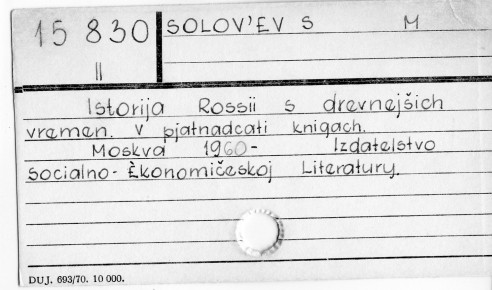 15 830
II
SOLOV'EV S M
Istorija Rossii s drevnejšich
vremen. v pjatnadcati knigach.
Moskva 1960- Izdatelstvo
Socialno-Èkonomičeskoj Literatury.
DUJ. 693/70. 10 000.